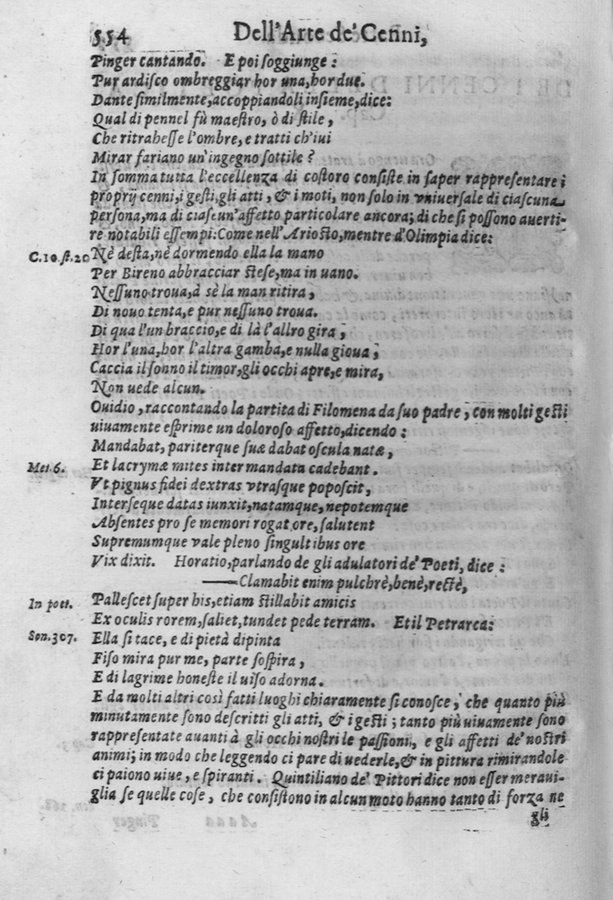 554 Dell'Arte de' Cenni,
Pinger cantando. E poi soggiunge:
Pur ardisco ombreggiar hor una, hor due.
Dante similmente, accoppiandoli insieme, dice:
Qual di pennel fù maestro, ò di stile,
Che ritrahesse l'ombre, e tratti ch'iui
Mirar fariano un'ingegno sottile?
In somma tutta l'eccellenza di costoro consiste in saper rappresentare i
proprij cenni, i gesti, gli atti, & i moti, non solo in vniuersale di ciascuna
persona, ma di ciascun'affetto particolare ancora; di che si possono auerti-
re notabili essempi: Come nell'Ariosto, mentre d'Olimpia dice:
C. 10. st. 20 Nè desta, nè dormendo ella la mano
Per Bireno abbracciar stese, ma in uano.
Nessuno troua, à sè la man ritira,
Di nouo tenta, e pur nessuno troua.
Di qua l'un braccio, e di là l'allro gira,
Hor l'una, hor l'altra gamba, e nulla gioua;
Caccia il sonno il timor, gli occhi apre, e mira,
Non uede alcun.
Ouidio, raccontando la partita di Filomena da suo padre, con molti gesti
uiuamente esprime un doloroso affetto, dicendo:
Mandabat, pariterque suæ dabat oscula natæ,
Met. 6. Et lacrymæ mites inter mandata cadebant.
Vt pignus fidei dextras vtrasque poposcit,
Interseque datas iunxit, natamque, nepotemque
Absentes pro se memori rogat ore, salutent
Supremumque vale pleno singultibus ore
Vix dixit. Horatio, parlando de gli adulatori de' Poeti, dice:
—Clamabit enim pulchrè, benè, rectè,
In poet. Pallescet super his, etiam stillabit amicis
Ex oculis rorem, saliet, tundet pede terram. Et il Petrarca:
Son. 307. Ella si tace, e di pietà dipinta
Fiso mira pur me, parte sospira,
E di lagrime honeste il uiso adorna.
E da molti altri così fatti luoghi chiaramente si conosce, che quanto più
minutamente sono descritti gli atti, & i gesti; tanto più uiuamente sono
rappresentate auanti à gli occhi nostri le passioni, e gli affetti de' nostri
animi; in modo che leggendo ci pare di uederle, & in pittura rimirandole
ci paiono uiue, e spiranti. Quintiliano de' Pittori dice non esser meraui-
glia se quelle cose, che consistono in alcun moto hanno tanto di forza ne
gli